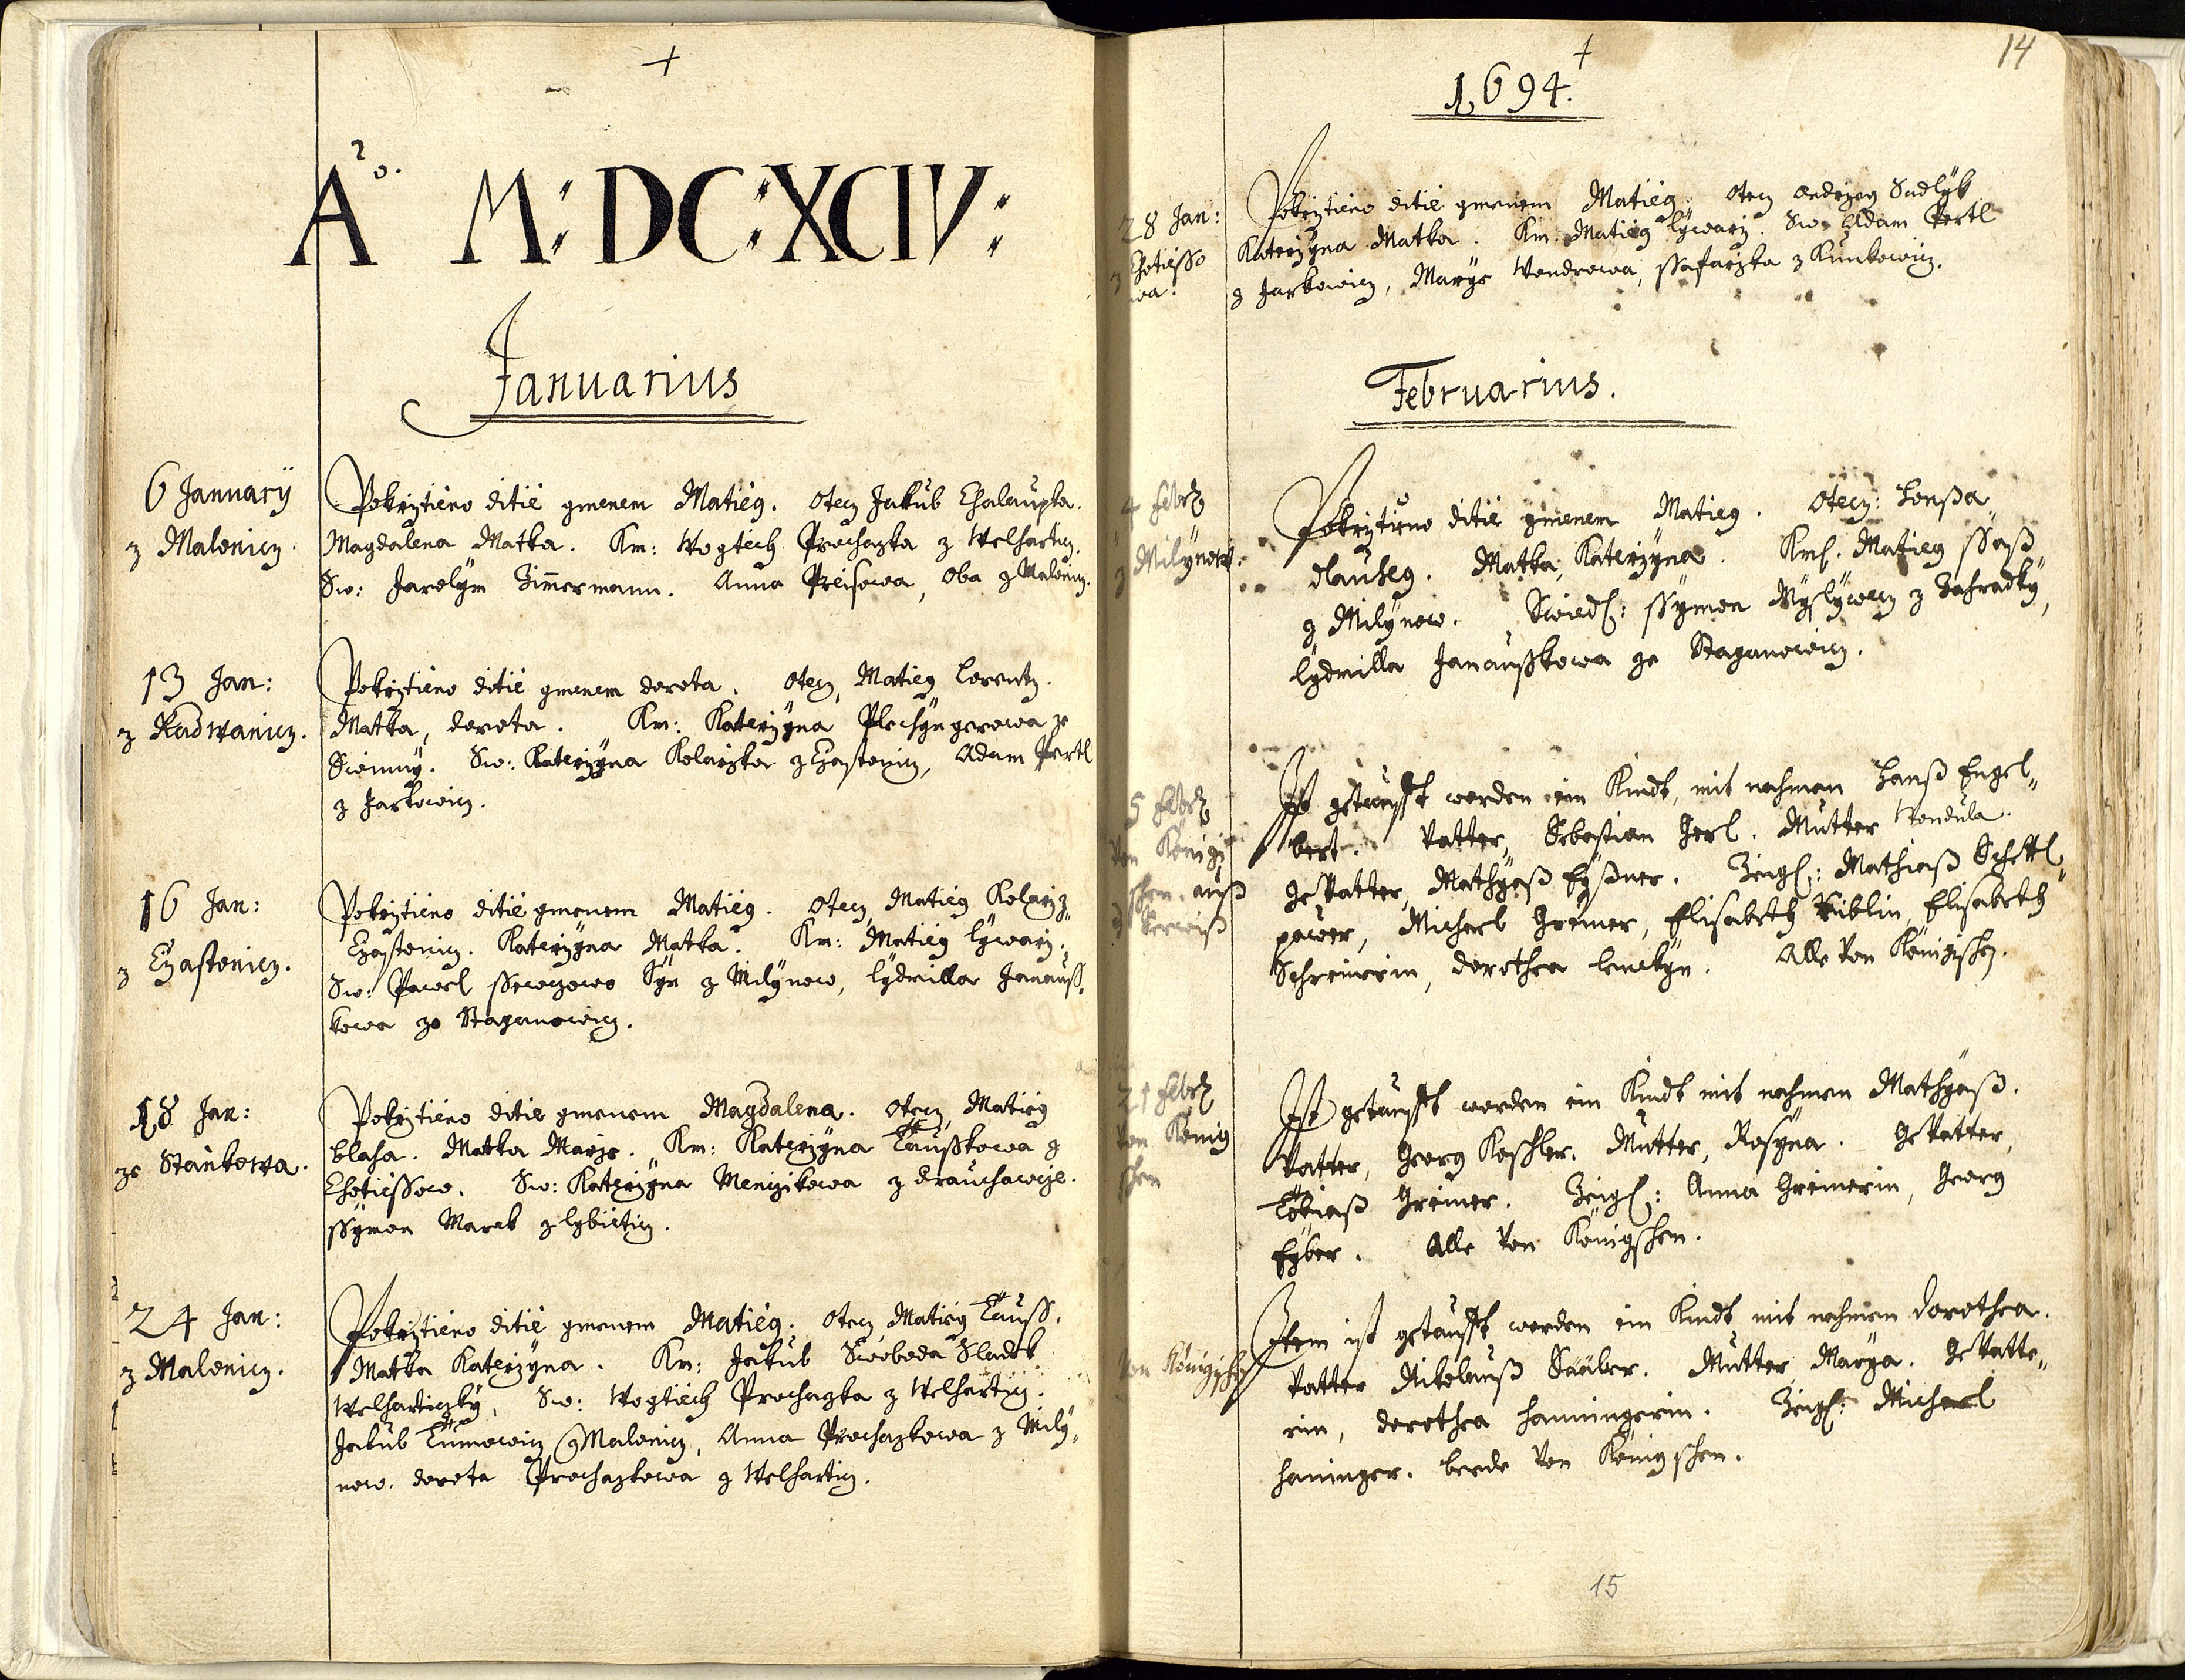 A⁰ M: DC: XCIV:
Januarius
6 Januarij
z Malonicz.
Pokrztieno ditie gmenem Matieg. Otecz Jakub Chalaupka.
Magdalena Matka. Km: Wogtiech Prochazka z Welharticz.
Sw: Jarolym Zimmermann. Anna Preisowa, oba z Malonicz.
13 Jan:
z Radwanicz.
Pokrztieno ditie gmenem dorota. Otecz, Matieg Lorentz.
Matka, dorota. Km: Katerzyna Plechyngerowa ze
Swinny. Sw: Katerzyna Kolarzka z Czastonicz, Adam Pertl
z Jarkowicz.
16 Jan:
z Czastonicz.
Pokrztieno ditie gmenem Matieg. Otecz, Matieg Kolarz z
Czastonicz. Katerzyna Matka. Km: Matieg lywarz.
Sw: Pawel Syn z Milynow, lydmilla Janauss,
kowa ze Stayanowicz.
18 Jan:
ze Stankowa.
Pokrztieno ditie gmenem Magdalena. Otecz, Matieg
blaha. Matka Marze. Km: Katerzyna Tausskowa z
Chotiessowa. Sw: Katerzyna Menczikowa z drauhawcze.
ssymon Marek z lybieticz.
24 Jan:
z Malonicz.
Pokrztieno ditie gmenem Matieg. Otecz, Matieg Tauss.
Matka Katerzyna. Km: Jakub Swoboda Sladek
Welharticzky, Sw: Wogtiech Prochazka z Welharticz.
Jakub Tumowicz z Malonicz, Anna Prochazkowa z Mily,
now. dorota Prochazkowa z Welhartic.
14
1694.
28 Jan:
z Chotiesso
wa.
Pokrztieno ditie gmenem Matieg. Otecz Ondrzeg Sudlyk
Katerzyna Matka. Km. Matieg lywarz. Sw. Adam Pertl
z Jarkowicz, Marye Wondrowa, ssafarzka z Kunkowicz.
Februarius.
4 Febr
z Milynow.
Pokrztieno ditie gmenem Matieg. Otecz: Honssa
dlauheg. Matka, Katerzyna. Km. Matieg
z Milynow. Swied: ssymon Myslywecz z Zahradky,
lydmilla Janausskowa ze Stayanowicz.
5 Febr
von Königs
schen. auß
Ist getaufft worden ein Kindt, mit nahmen Hanß Engel,,
bert. Vatter, Sebastian Gerl. Mutter Wondula.
gevatter, Mathyaß Eyßner. Zeug: Mathiaß Schettl,
pawer, Michael Greiner, Elisabeth Küblin, Elisabeth
Schreinerin, dorothea Alle von Königschen.
21 Febr
von König
schen
Ist getaufft worden ein Kindt mit nahmen Mathyaß.
Vatter, Georg Koschler. Mutter, Rosyna. gevatter,
Tobiaß Greiner. Zeug: Anna Greinerin, Georg
Eyber. Alle von Königschen.
von Königschen
Item ist getaufft worden ein Kindt mit nahmen dorothea.
Vatter Nikolauß Mutter Marya. gevatte,,
rin, dorothea Hanningerin. Zeug: Michael
Haninger. beede von Königschen.
15